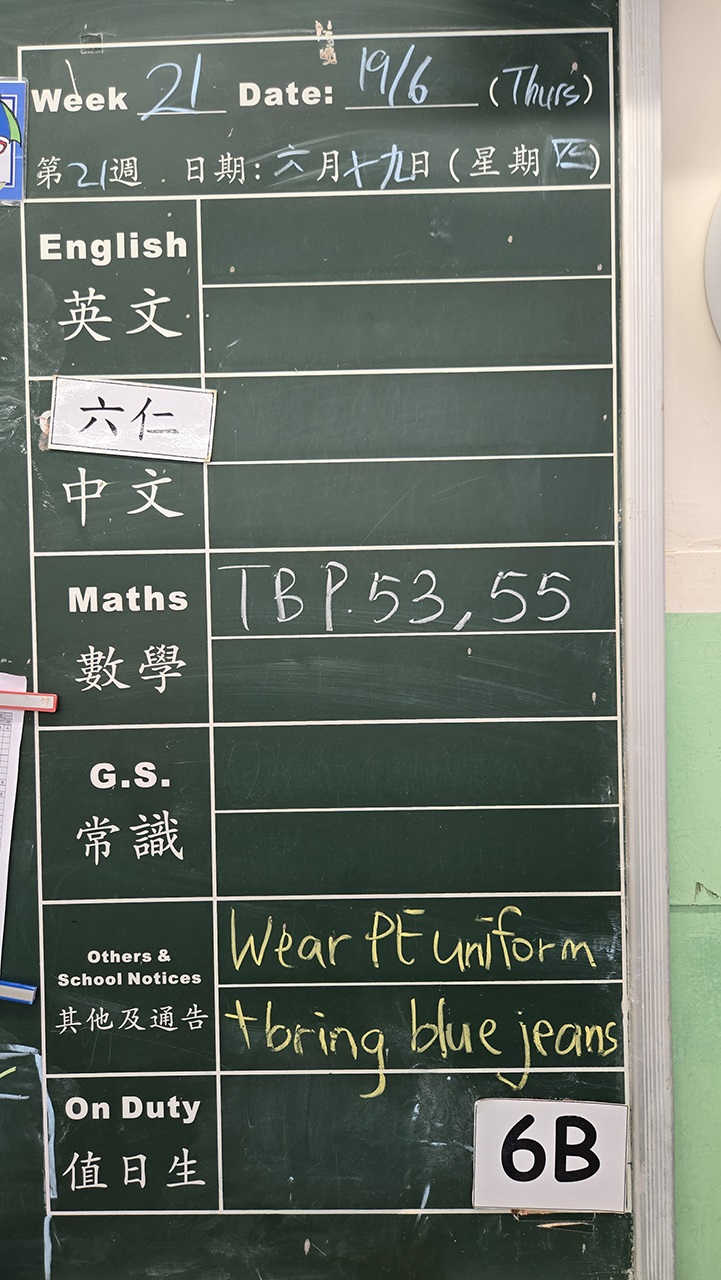 Week 21 Date: 19/6 (Thurs)
第21週 . 日期: 六月十九日 (星期四)
English
英文
六仁
中文
Maths
TB P.53, 55
數學
G.S.
常識
Others &
School Notices
其他及通告
Wear PE uniform
+bring blue jeans
On Duty
值日生
6B